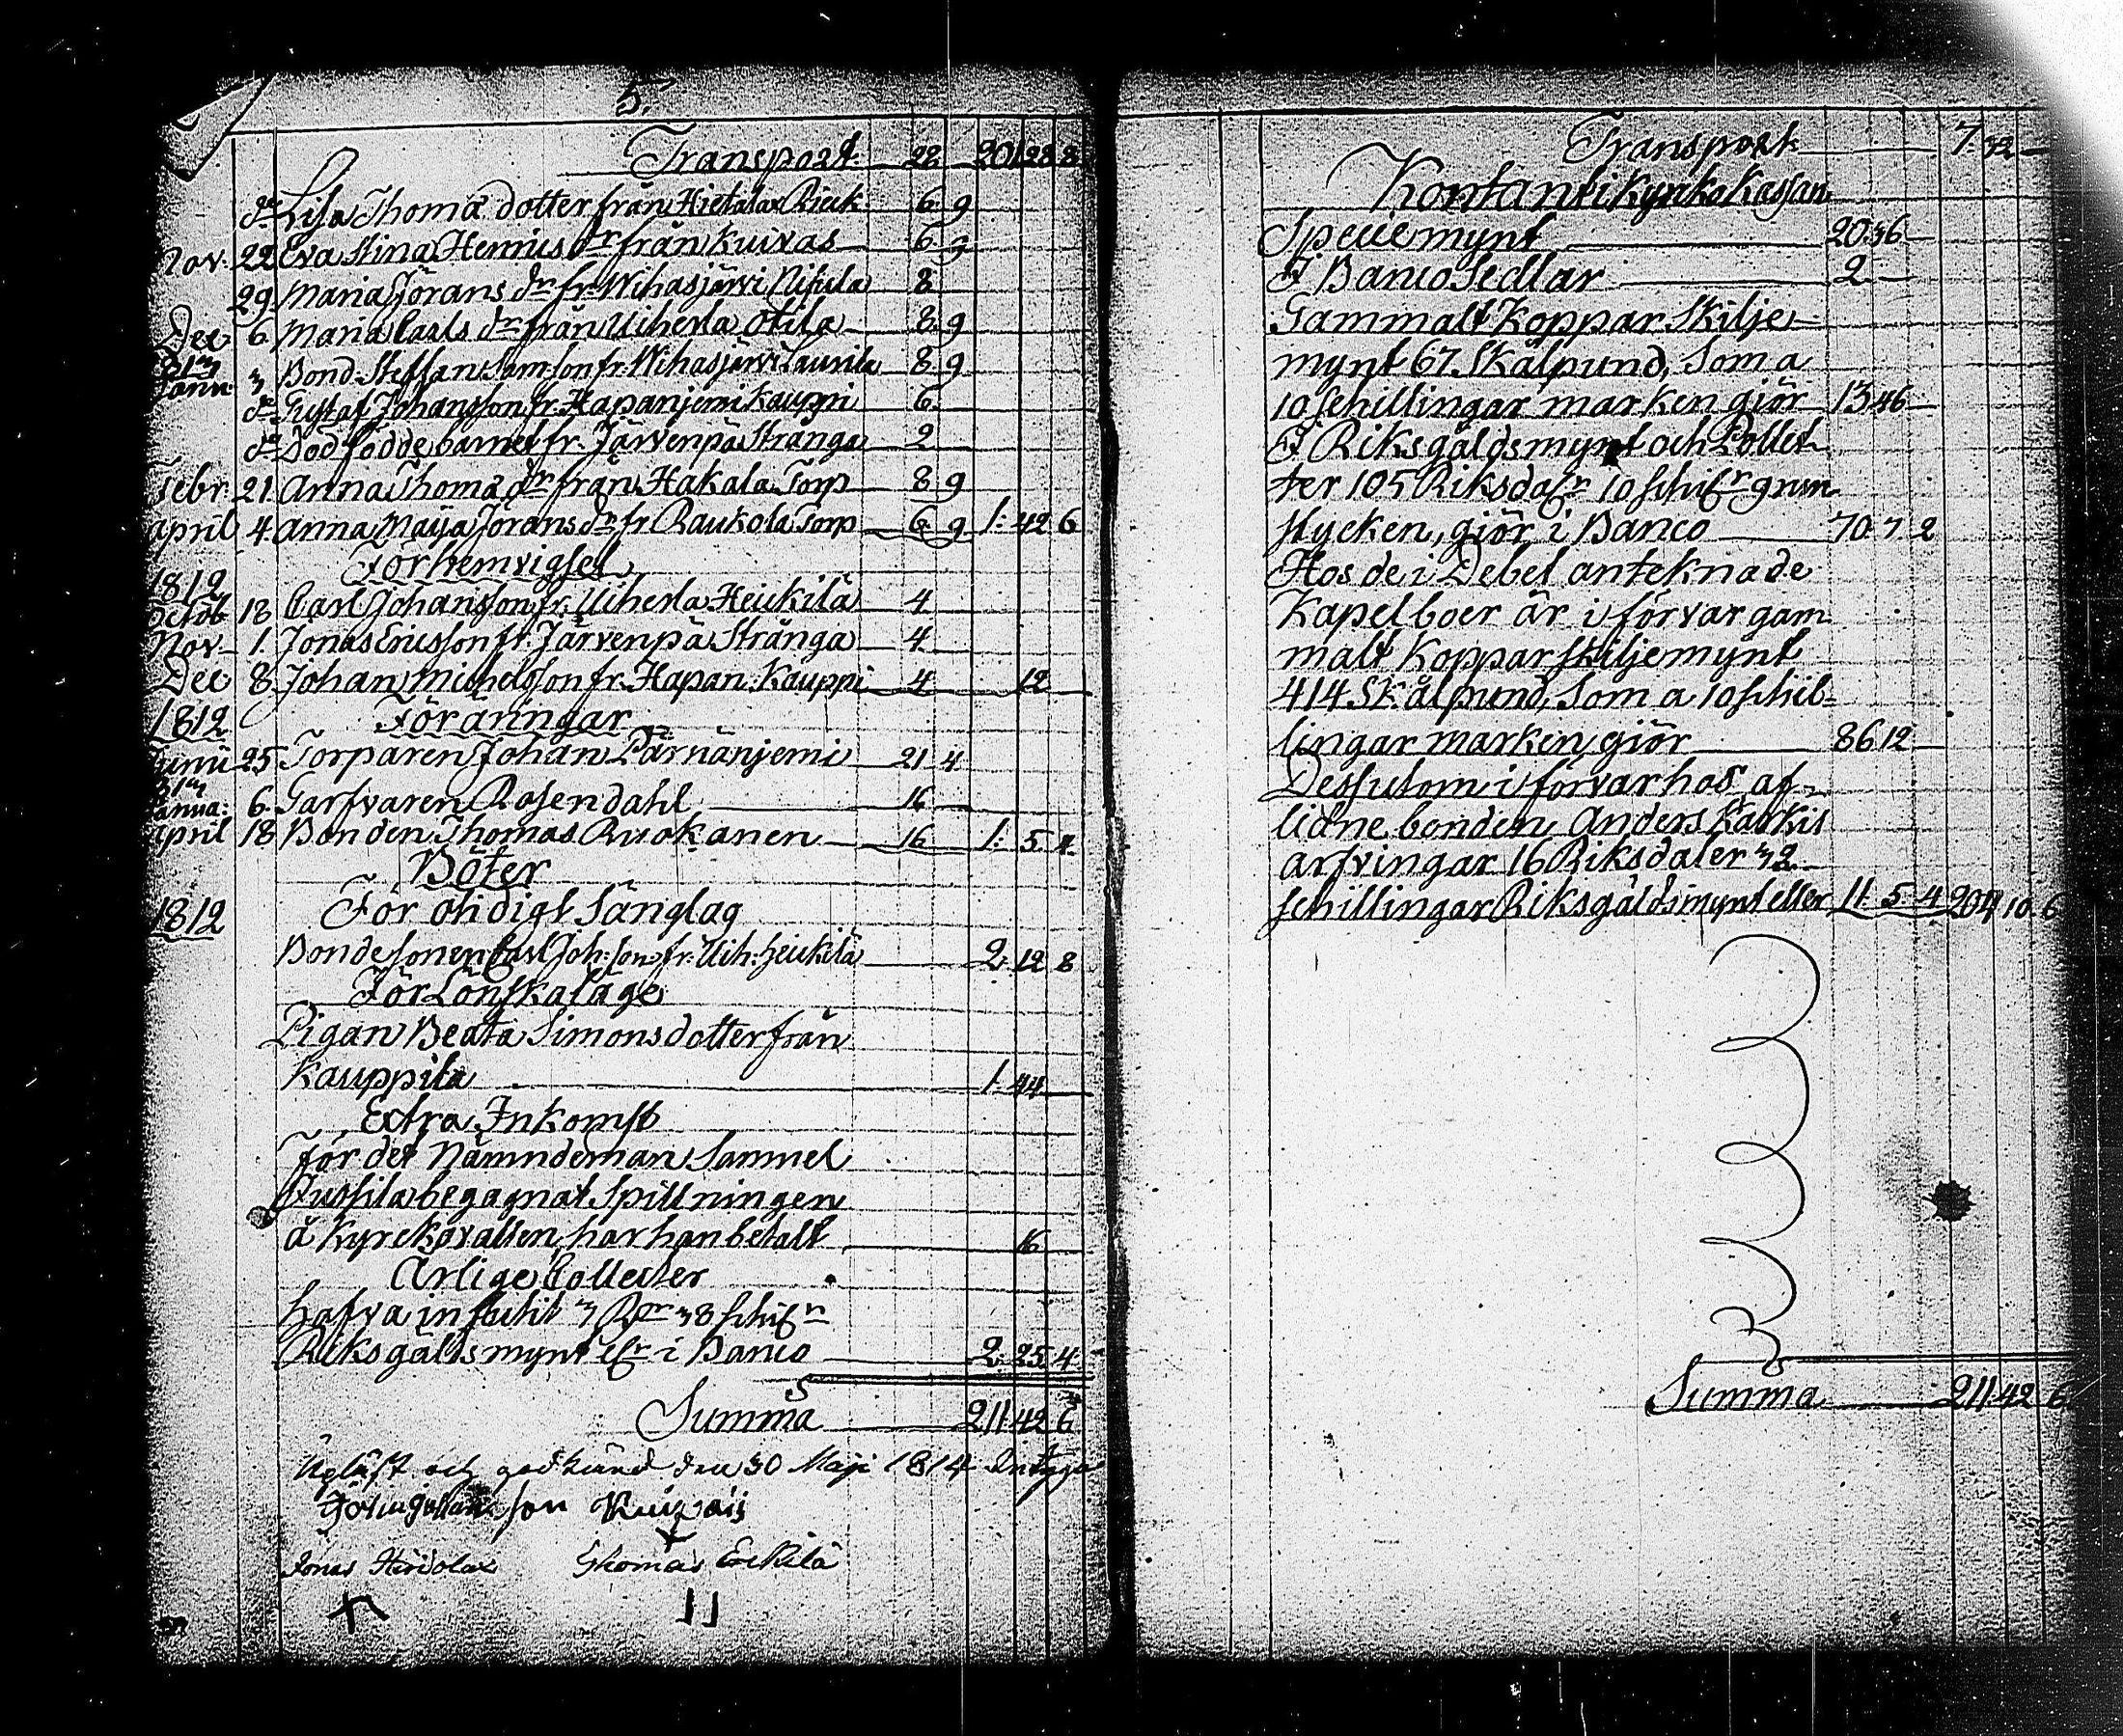 5.
Transport 22 201 28 8
do Lisa Thomä dotter från Hietalax Rieck 6 9
Nov. 22 Eva Stina Henrics dr från Kuivas 6 9
29 Maria Jörans dr fr. Wihasjärvi Nifula 8
Dec 6 Maria Carls dr från Uiherla Otila 8 9
Janu: 3 Bond. Steffan Samson fr. Wihasjärvi Laurila 8 9
do Gustaf Johansson fr. Hapanjemi Kauppi 6
do Dödfödde barnet fr. Järvenpä Strånga 2
Febr. 21 Anna Thomä dr från Hakala Torp 8 9
april 4 Anna Maija Jörans dr fr Raukola Torp 6 9 1: 42 6
För hemvigsel
1812
Octob 18 Carl Johansson fr. Uiherla Heickilä 4
Nov 1. Jonas Ericsson fr. Järvenpä Strånga 4
Dec 8 Johan Michelsson fr. Hapan: Kauppi 4 12
1812 Föräringar
Junii 25 Torparen Johan Pärnänjemi 21 4
Janua: 6 Garfvaren Rosendahl 16
April 18 Bonden Thomas Ruokanen 16 1: 5 4
Böter
1812 För otidigt Sänglag
Bondesonen Carl Joh:son fr: Uih: Heickilä 2: 12 8
För Lönskaläge
Pigan Beata Simonsdotter från
Kauppila 1: 44
Extra Inkomst
För det Nämndeman Samuel
Jussila begagnat Spillningen
å Kyrckovallen, har han betalt 16
Årlige Collecter
hafva influtit 3 Rdr 38 schilr
Riksgälds mynt elr i Banco 2: 25 4
Summa 211 42 6
Upläst och godkänd den 30 Maji 1814 Intyga
son Kuivais
Jonas Hirvolax Thomas Eerkilä
Transport 7. 32
Kontant i Kyrko Kassan
Speciemynt 20 36
I Banco Sedlar 2
Gammalt Koppar Skilje
mynt 67 Skålpund, Som a
10 schillingar marken giör 13 46
I Riksgäldsmynt och Pollet
ter 105 Riksdalr 10 schilr 9 run
stycken, giör i Banco 70 7 2
Hos de i Debet anteknade
Kapelboer är i förvar gam
malt Koppar skiljemynt
414 Skålpund, Som a 10 schil=
lingar marken giör 86 12
Dessutom i förvar hos af-
lidne bonden Anders Karkis
arfvingar 16 Riksdaler 32
schillingar Riksgäldsmynt eller 11 5 4 204 10 6
Summa 211 42 6